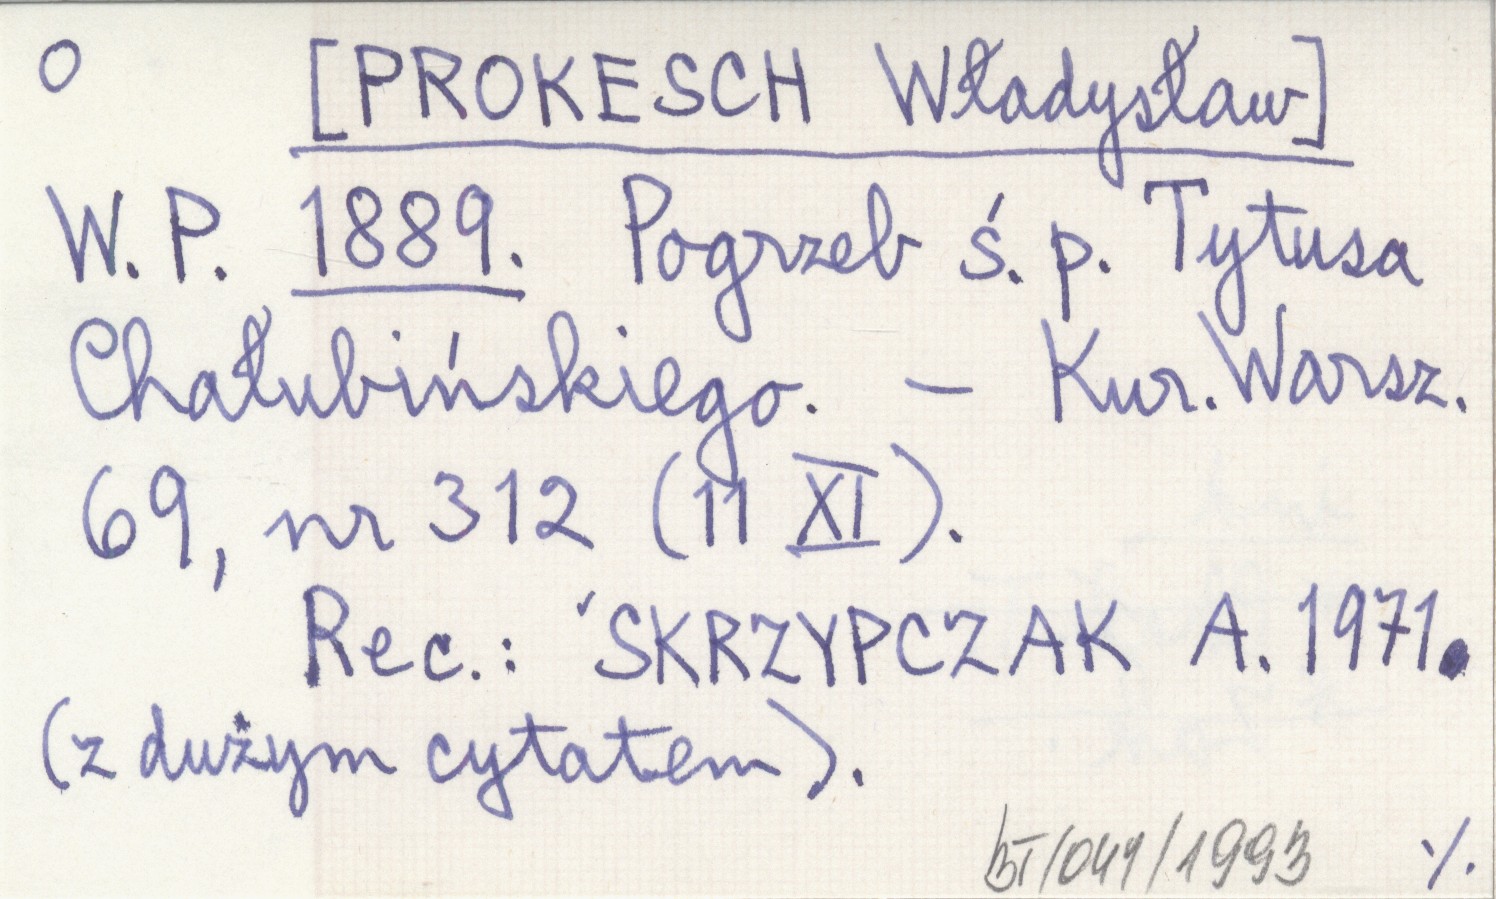 O [PROKESCH Władysław]
W. P. 1889. Pogrzeb ś. p. Tytusa
Chałubińskiego. – Kur. Warsz.
69, nr 312 (11 XI).
Rec.: SKRZYPCZAK A. 1971.
(z dużym cytatem).
/1993 ./.